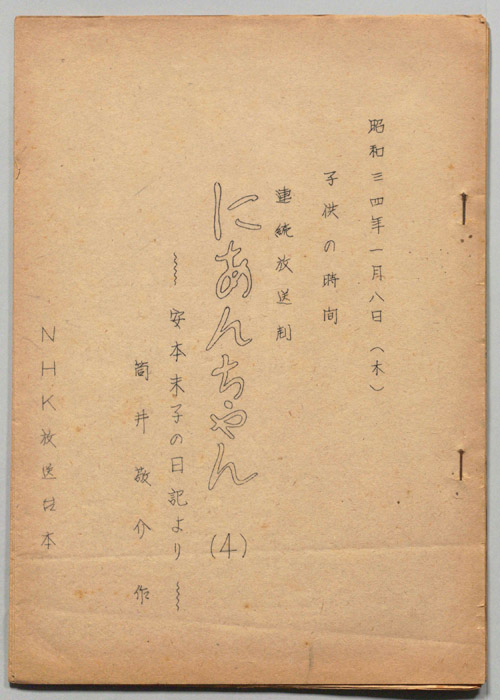 昭和三四年一月八日(木)
子供の時間
連続放送劇
にあんちゃん(4)
~~~ 安本末子の日記より ~~~
筒井敬介 作
NHK放送台本